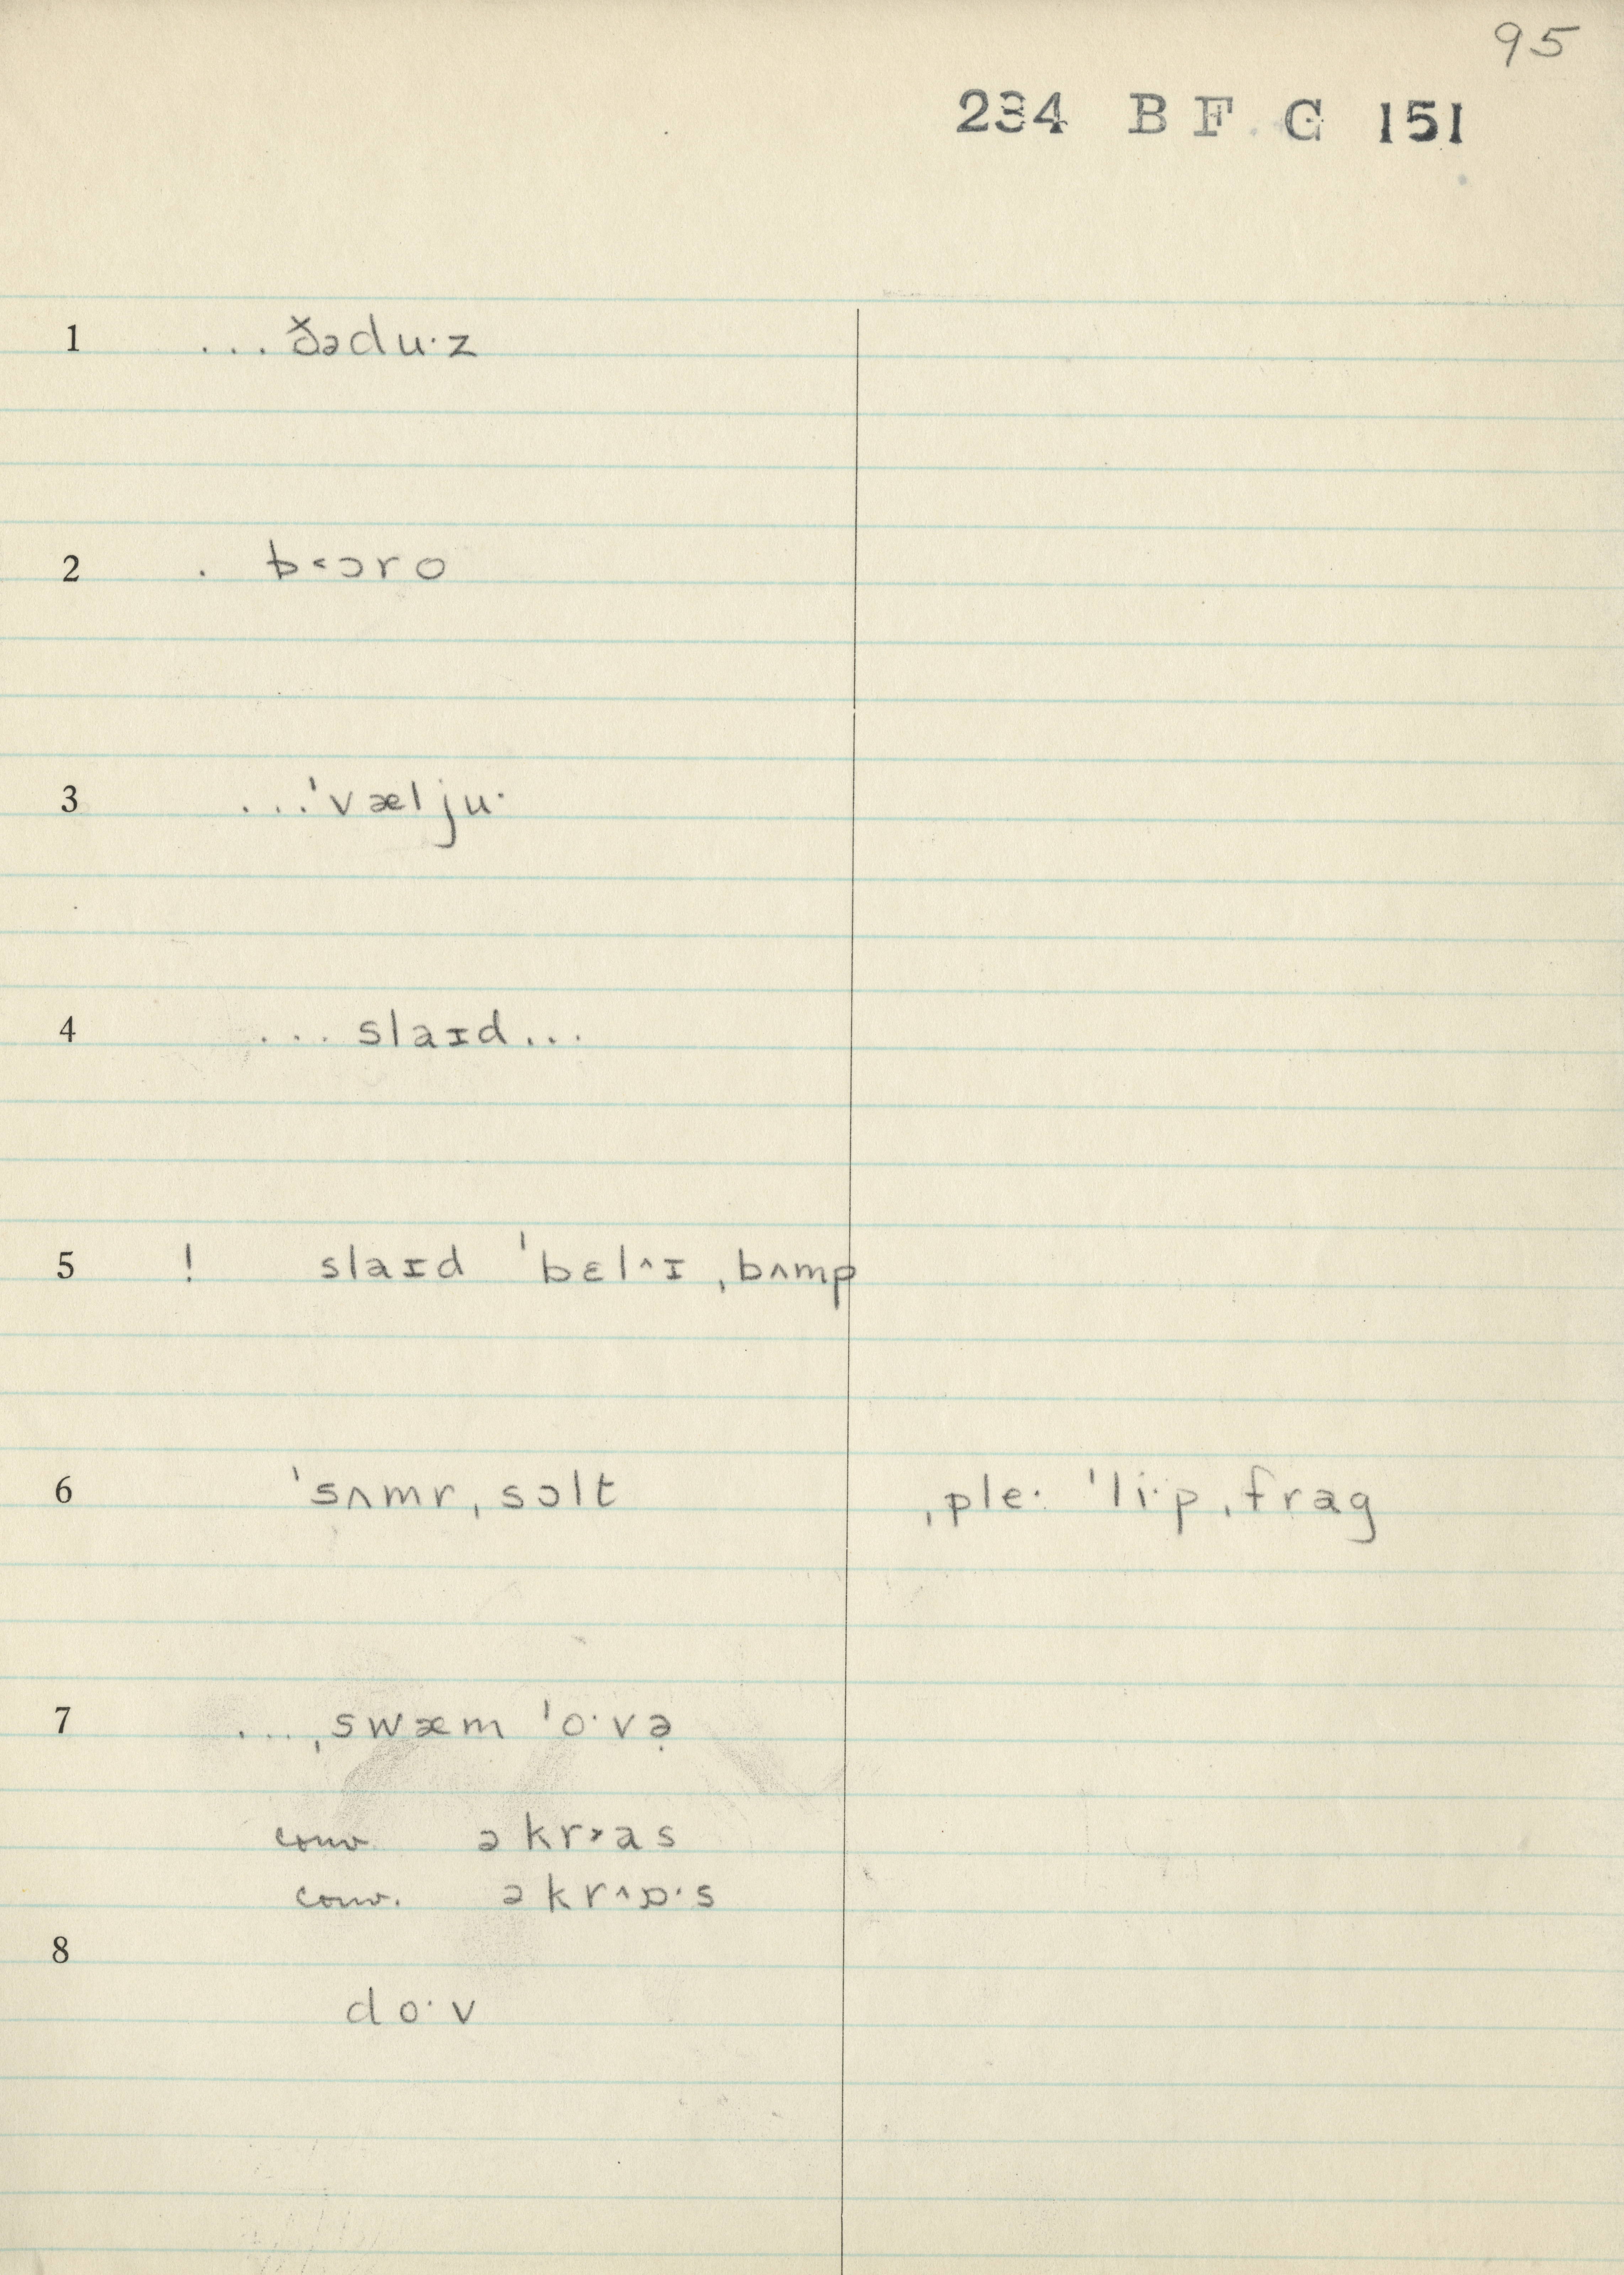 95
234 B F G 151
1 ...ðədu·z
2 . b˂ɔro
3 ...ˈvælju·
4 ... slaɪd...
5 ! slaɪd ˈbɛl˄ɪ ˌbʌmp
6 ˈsʌmrˌsɔlt ˌple· ˈli·pˌfrag
7 ...ˌswæm ˈo·və̣
conv. əkr˃as
conv. əkr˄ɒ·s
8
do·v